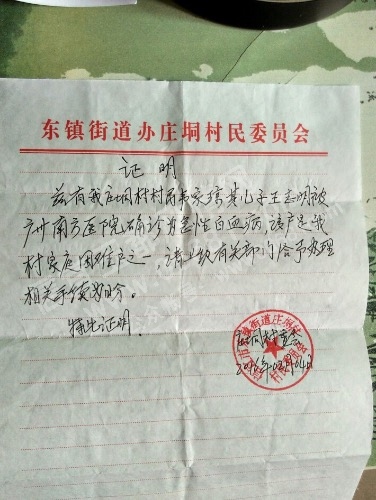 东镇街道办庄垌村民委员会
证明
兹有我庄垌村村民韦家琼其儿子王志明被
广州南方医院确诊为急性白血病，该户是我
村家庭困难户之一，请上级有关部门给予办理
相关手续为盼。
特此证明。
庄垌村委会
2016年02月04日